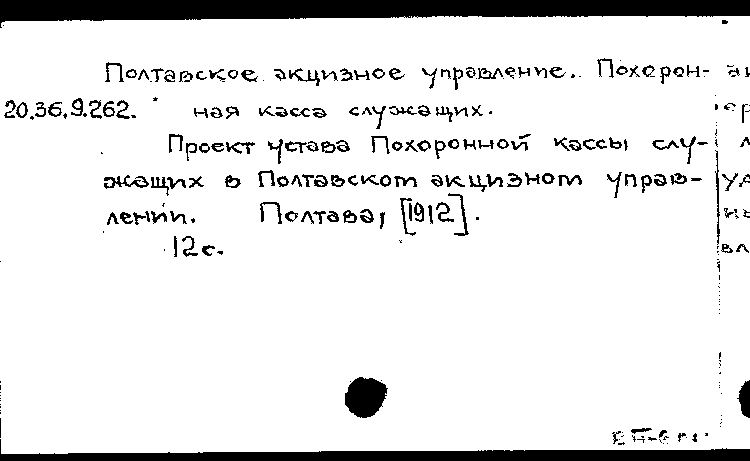 Полтавское акцизное управление. Похорон-
20.36.9.262. ная касса служащих.
Проект устава Похоронной кассы слу-
жащих в Полтавском акцизном управ-
лении. Полтава, [1912].
12 с.